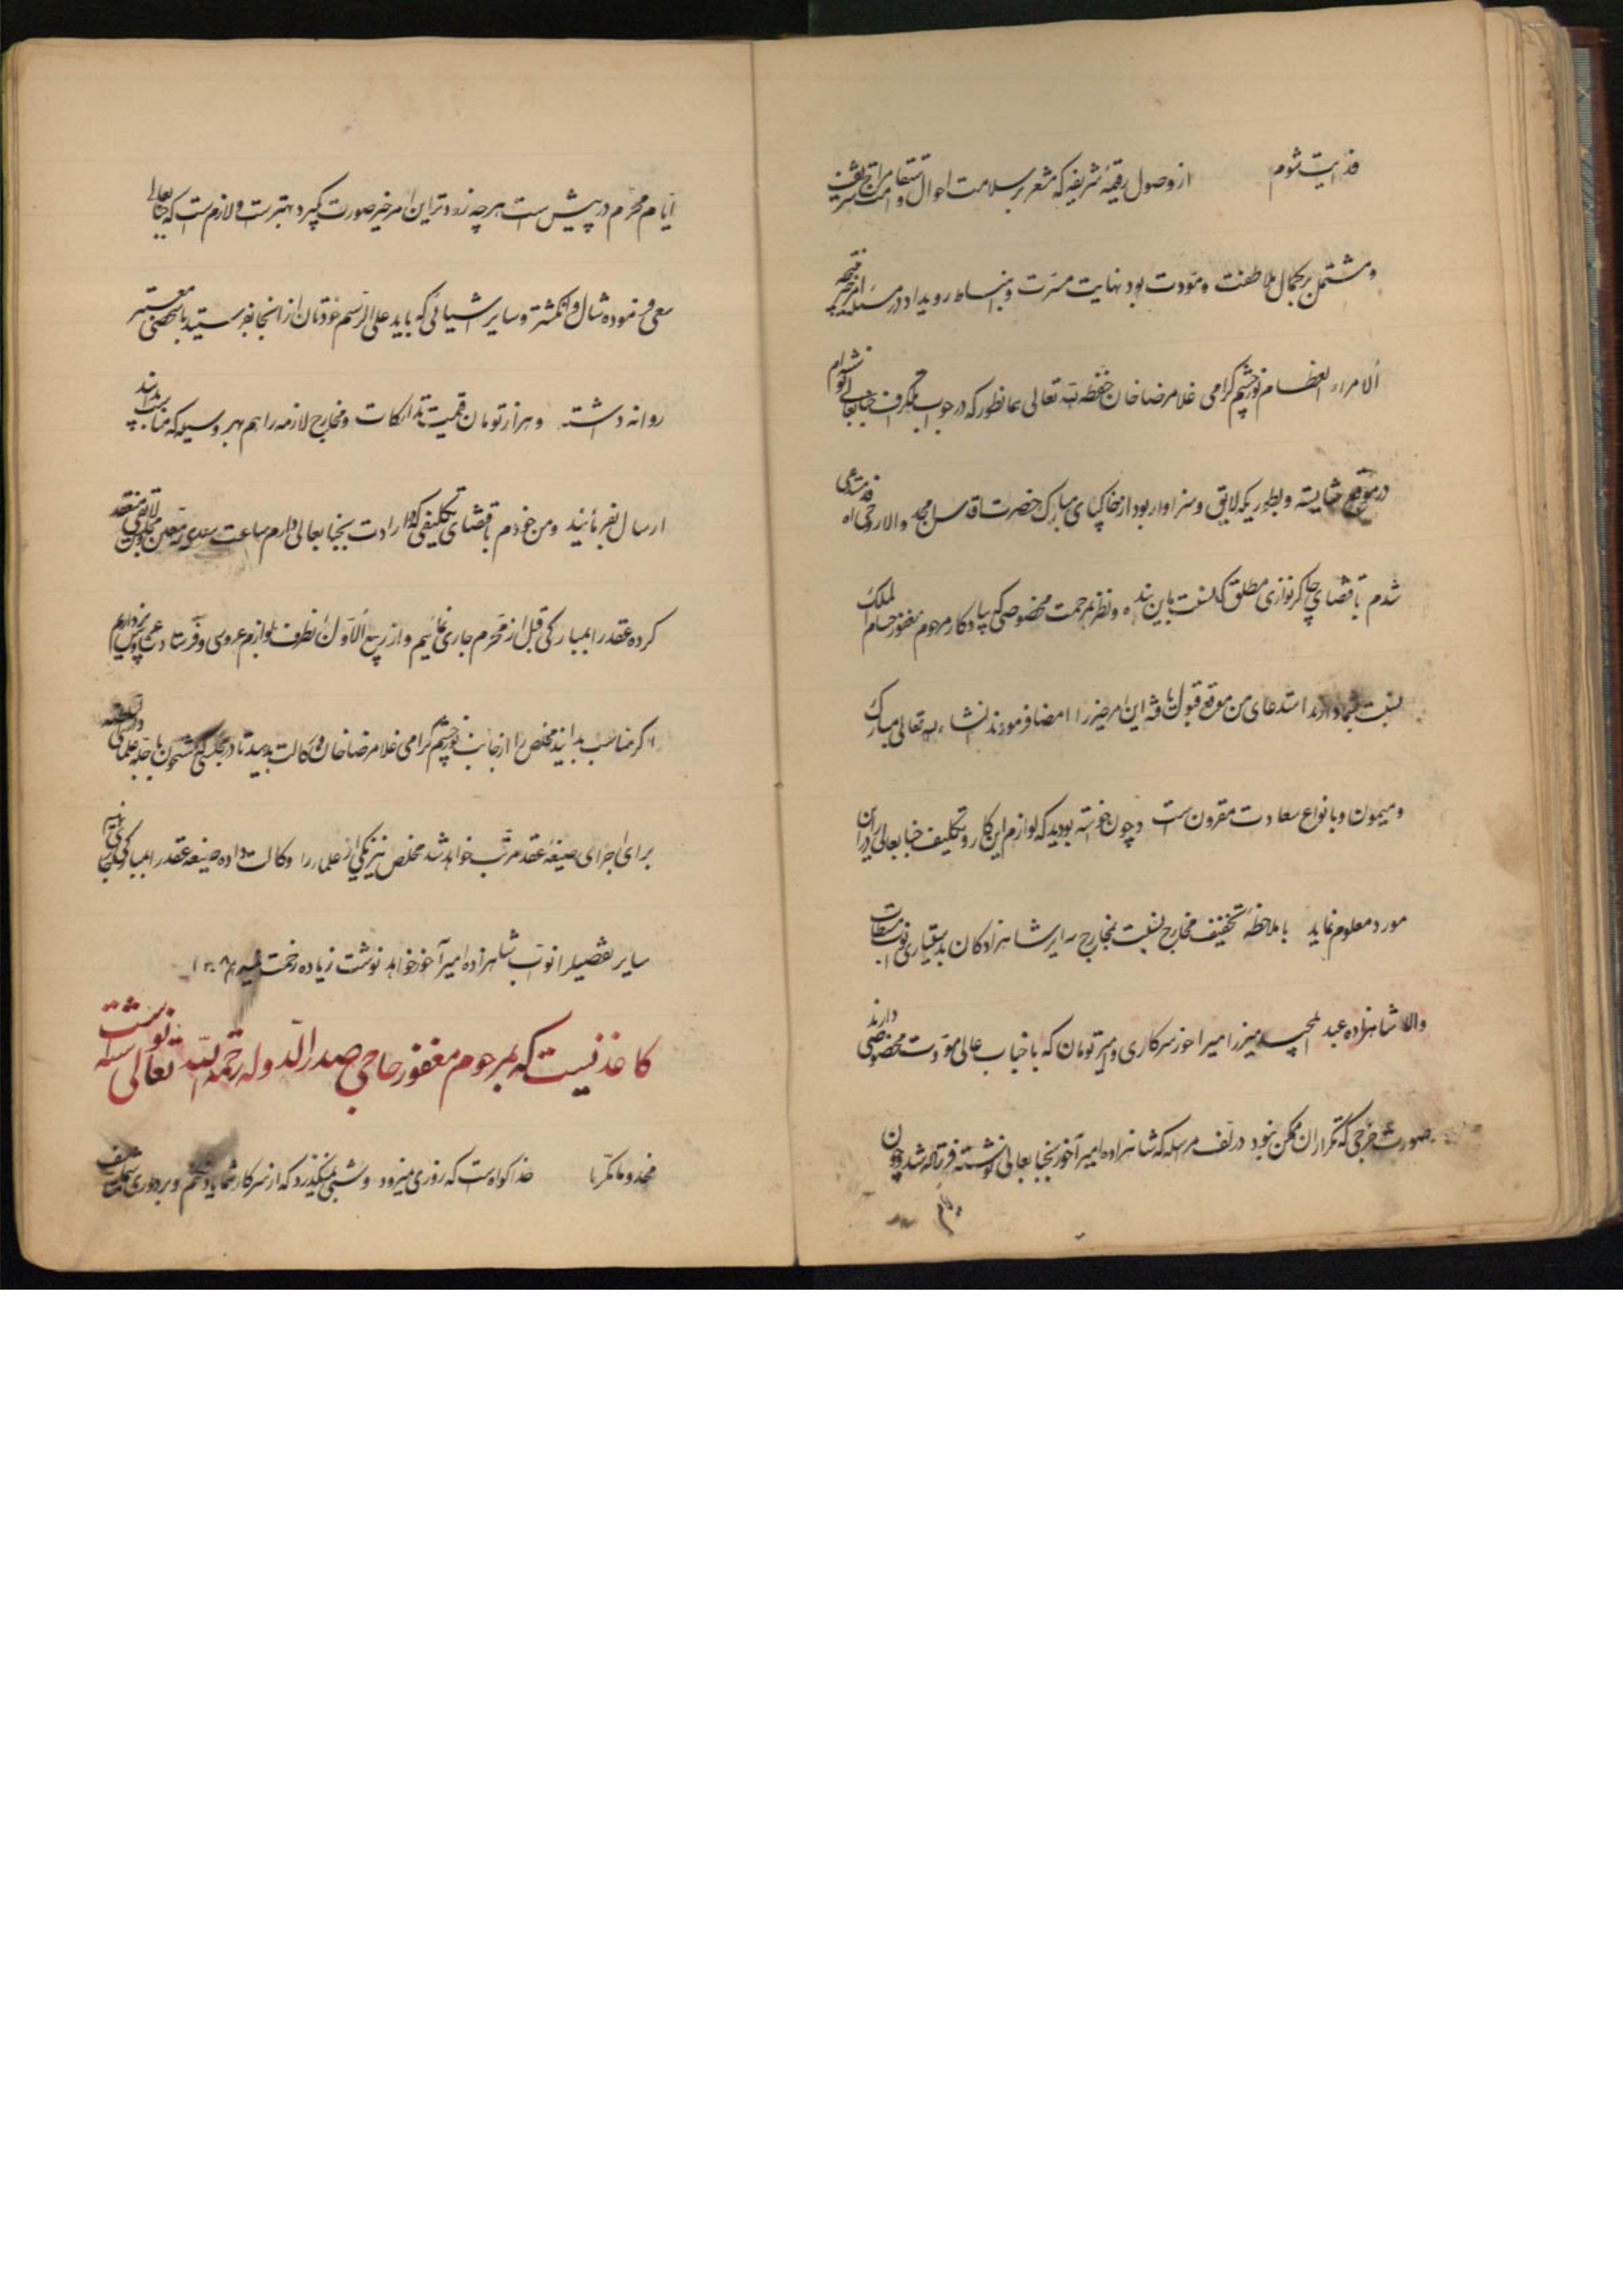 فدایت شوم از وصول رقیمهٔ شریفه که مشعر بر سلامت احوال و استقامت مزاج شریف
و مشتمل بر کمال ملاطفت و مودت بود نهایت مسرت و انبساط رویداد در مسئله
الامراء العظام نورچشم گرامی غلامرضا خان حفظه الله تعالی همانطور که در جواب تلگراف جنابعالی
در موقع شایسته و بطوریکه لایق و سزاوار بود از خاکپای مبارک حضرت اقدس امجد والا روحی فداه مستدعی
شدم باقتضای چاکرنوازی مطلق که نسبت باین بنده و نظر مرحمت مخصوصی که بیادگار مرحوم مغفور حسام الملک
نسبت بشما دارند استدعای من موقع قبول یافته این امر خیر را امضا فرمودند انشاء الله تعالی مبارک
و میمون و بانواع سعادت مقرون است و چون خواسته بودید که لوازم این کار و تکلیف جنابعالی را در این
مورد معلوم نماید با ملاحظهٔ تخفیف مخارج نسبت بمخارج سایر شاهزادگان بدستیاری نواب
والا شاهزاده عبد میرزا امیرآخور سرکاری و امیر تومان که با جناب عالی مودت مخصوصی دارند
صورت خرجی که کمتر از آن ممکن نبود در لف مرسله که شاهزاده امیرآخور بجنابعالی نوشته فرستاده شد چون
ایام محرم در پیش است هر چه زودتر این امر خیر صورت بگیرد بهتر است و لازم است که جنابعالی
سعی فرموده شال و انگشتر و سایر اشیائی که باید علی الرسم خودتان از آنجا بفرستید با شخص معتبر
روانه داشته و هزار تومان قیمت تدارکات و مخارج لازمه را هم بهر وسیله که مناسب بدانند
ارسال بفرمائید و من خودم باقتضای تکلیفی که در ارادت بجنابعالی دارم ساعت سعدی معین و مجلس لایقی منعقد
کرده عقد را بمبارکی قبل از محرم جاری نمائیم و از ربیع الاول بطرف لوازم عروسی و فرستادن عروس بپردازیم
اگر مناسب بدانید مخلص را از جانب نورچشم گرامی غلامرضا خان وکالت بدهید تا در مجلسی که مشحون باجلهٔ علمای
برای اجرای صیغهٔ عقد مرتب خواهد شد مخلص نیز یکی از علماء را وکالت داده صیغهٔ عقد را بمبارکی جاری نمائیم
سایر تفصیل را نواب شاهزاده امیرآخور خواهد نوشت زیاده زحمت نمیدهم ۱۳۰۸
کاغذیست که بمرحوم مغفور حاجی صدرالدوله رحمه الله تعالی نوشته است
مخدوما مکرما خدا گواه است که روزی نمیرود و شبی نمیگذرد که از سرکار شما یاد نکنم و بر دوری